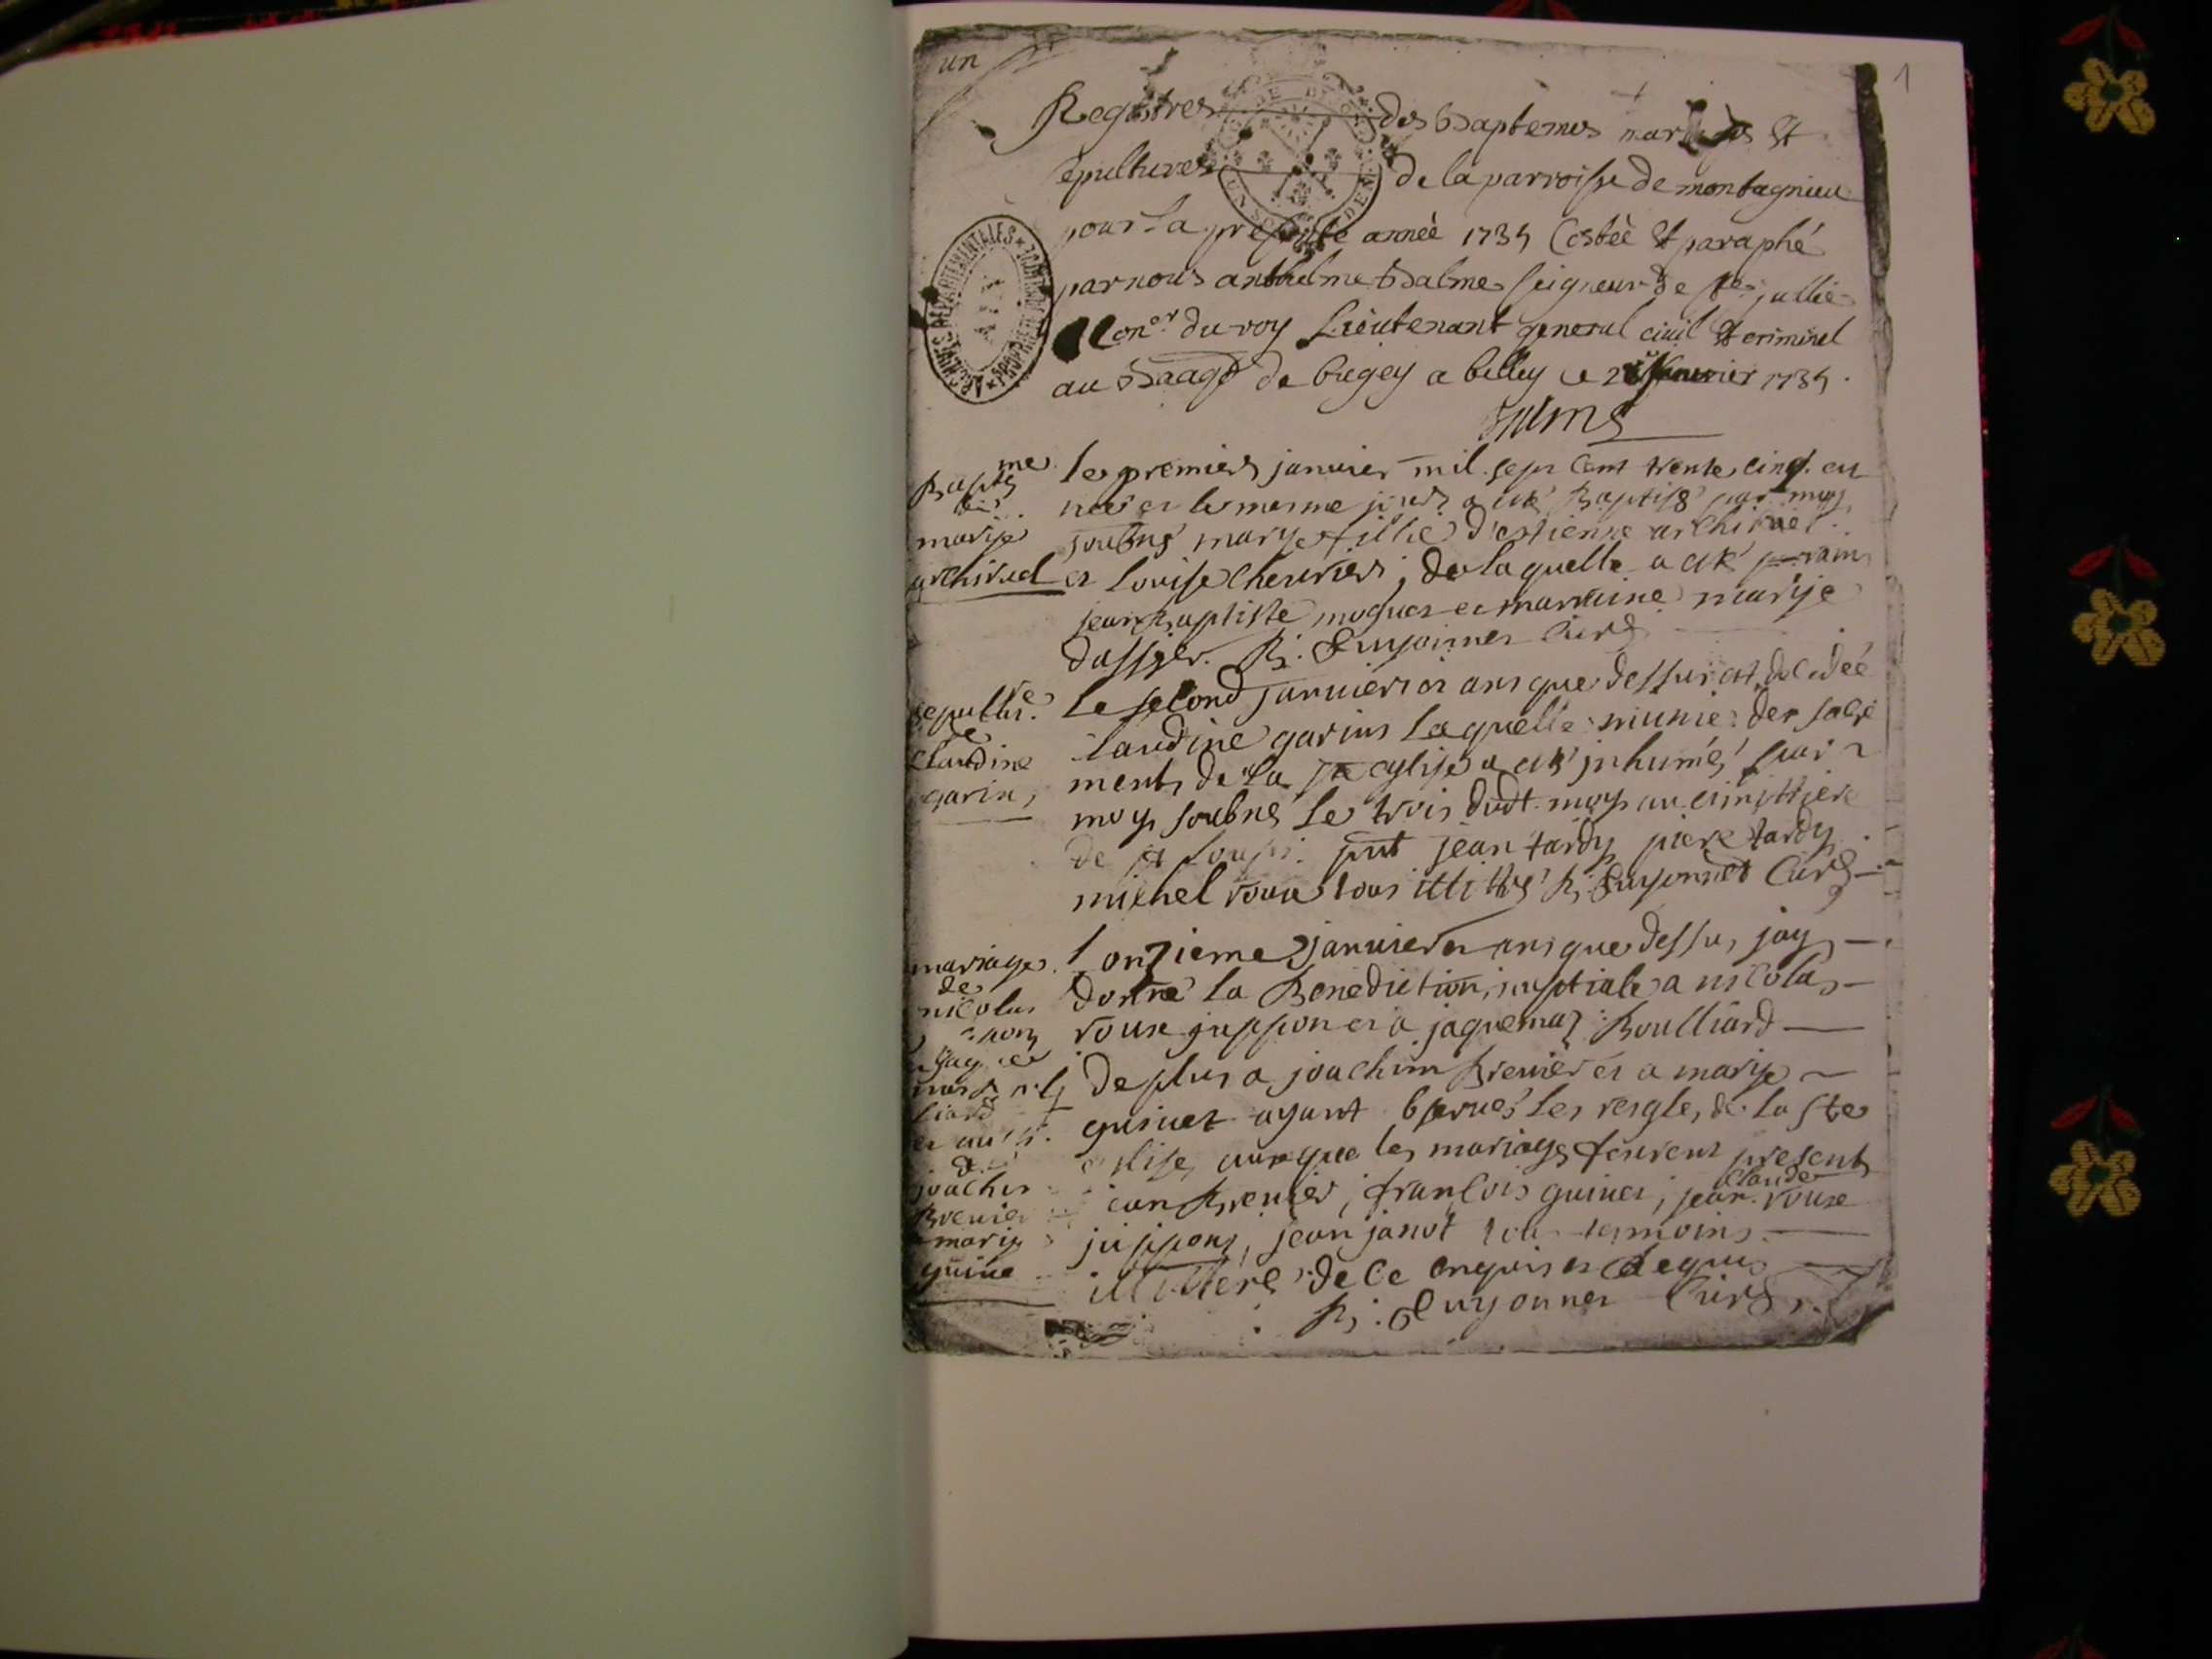 1
un
Registres des Baptemes mariages et
sepultures de la parroisse de montagnieu
pour la presente année 1735 Costée et paraphé
par nous anthelme Balme seigneur de Ste jullie
Con.er du roy Lieutenant general civil et criminel
au Baage de bugey a belley le janvier 1735.
Balme
ARCHIVES DEPARTEMENTALES
Baptême
marie
archirel
le premier janvier mil sept cent trente cinq est
née et le mesme jour a été Baptisé par moy
soubné marie fillie d'estienne archirel
et Louise chevrier, de laquelle a été parain
jean Baptiste moguet et marraine marie
dassier. Guyonnet Curé
sepultu.re
de
Claudine
garin,
Le second janvier et ans que dessus est decedée
claudine garins laquelle munie des sacre
ments de la ste eglise a été inhumé par
moy soubné le trois dudt moys au cimittiere
de st pnt jean tardy piere tardy
michel roux tous illitré Guyonnet Curé
mariage
de
nicolas
joachim
Brenier
marie
guine
l onzieme janvier et ans que dessus jay
donné la Benediction nuptiale a nicolas
roux juppon et a jaquemaz Boulliard
de plus a joachim Brenier et a marie
guinet ayant bservé les reigles de la ste
eglise, auxquels mariages feurent presents
jean Brenier, françois guinet, jean claude roux
juppont, jean janot tous temoins
illitteré de ce enquis et requis
Guyonnet Curé